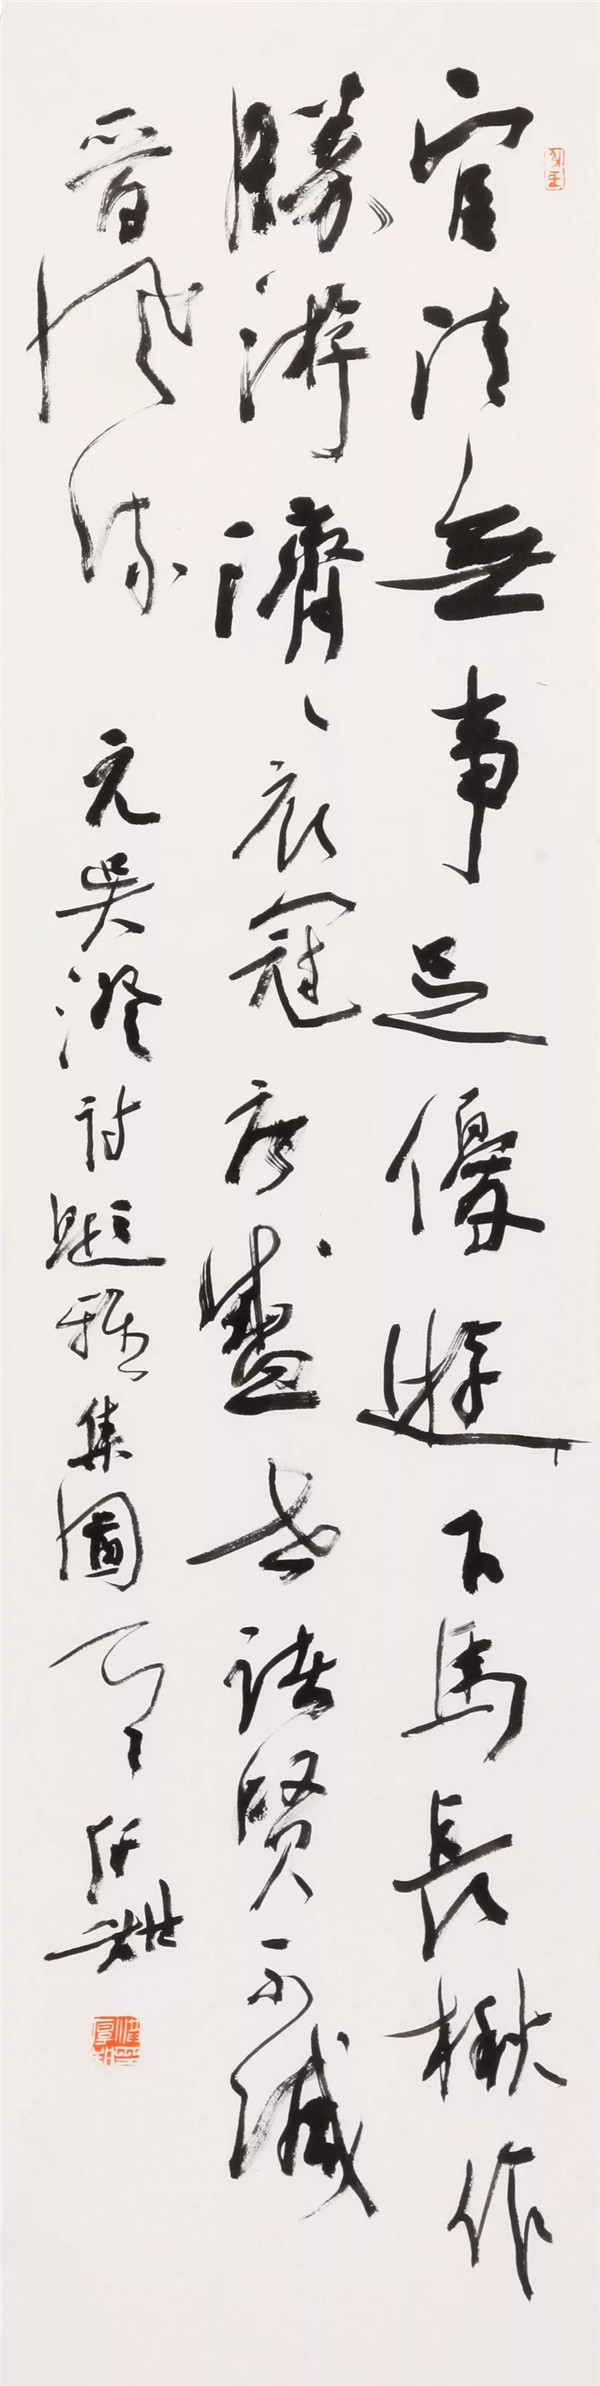 官清無事足優遊下馬長楸作
勝游濟々衣冠唐盛世諸賢不減
晋風流
元吳澄詩題雅集圖